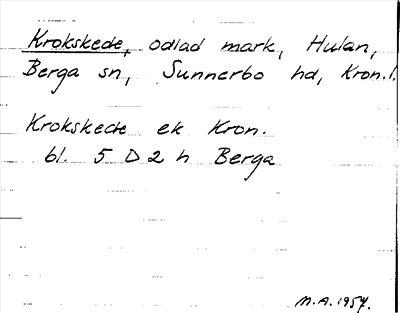 Krokskede, odlad mark, Hulan,
Berga sn, Sunnerbo hd, Kron.l.
Krokskede ek Kron.
bl. 5 D 2 h Berga
M.A. 1957.